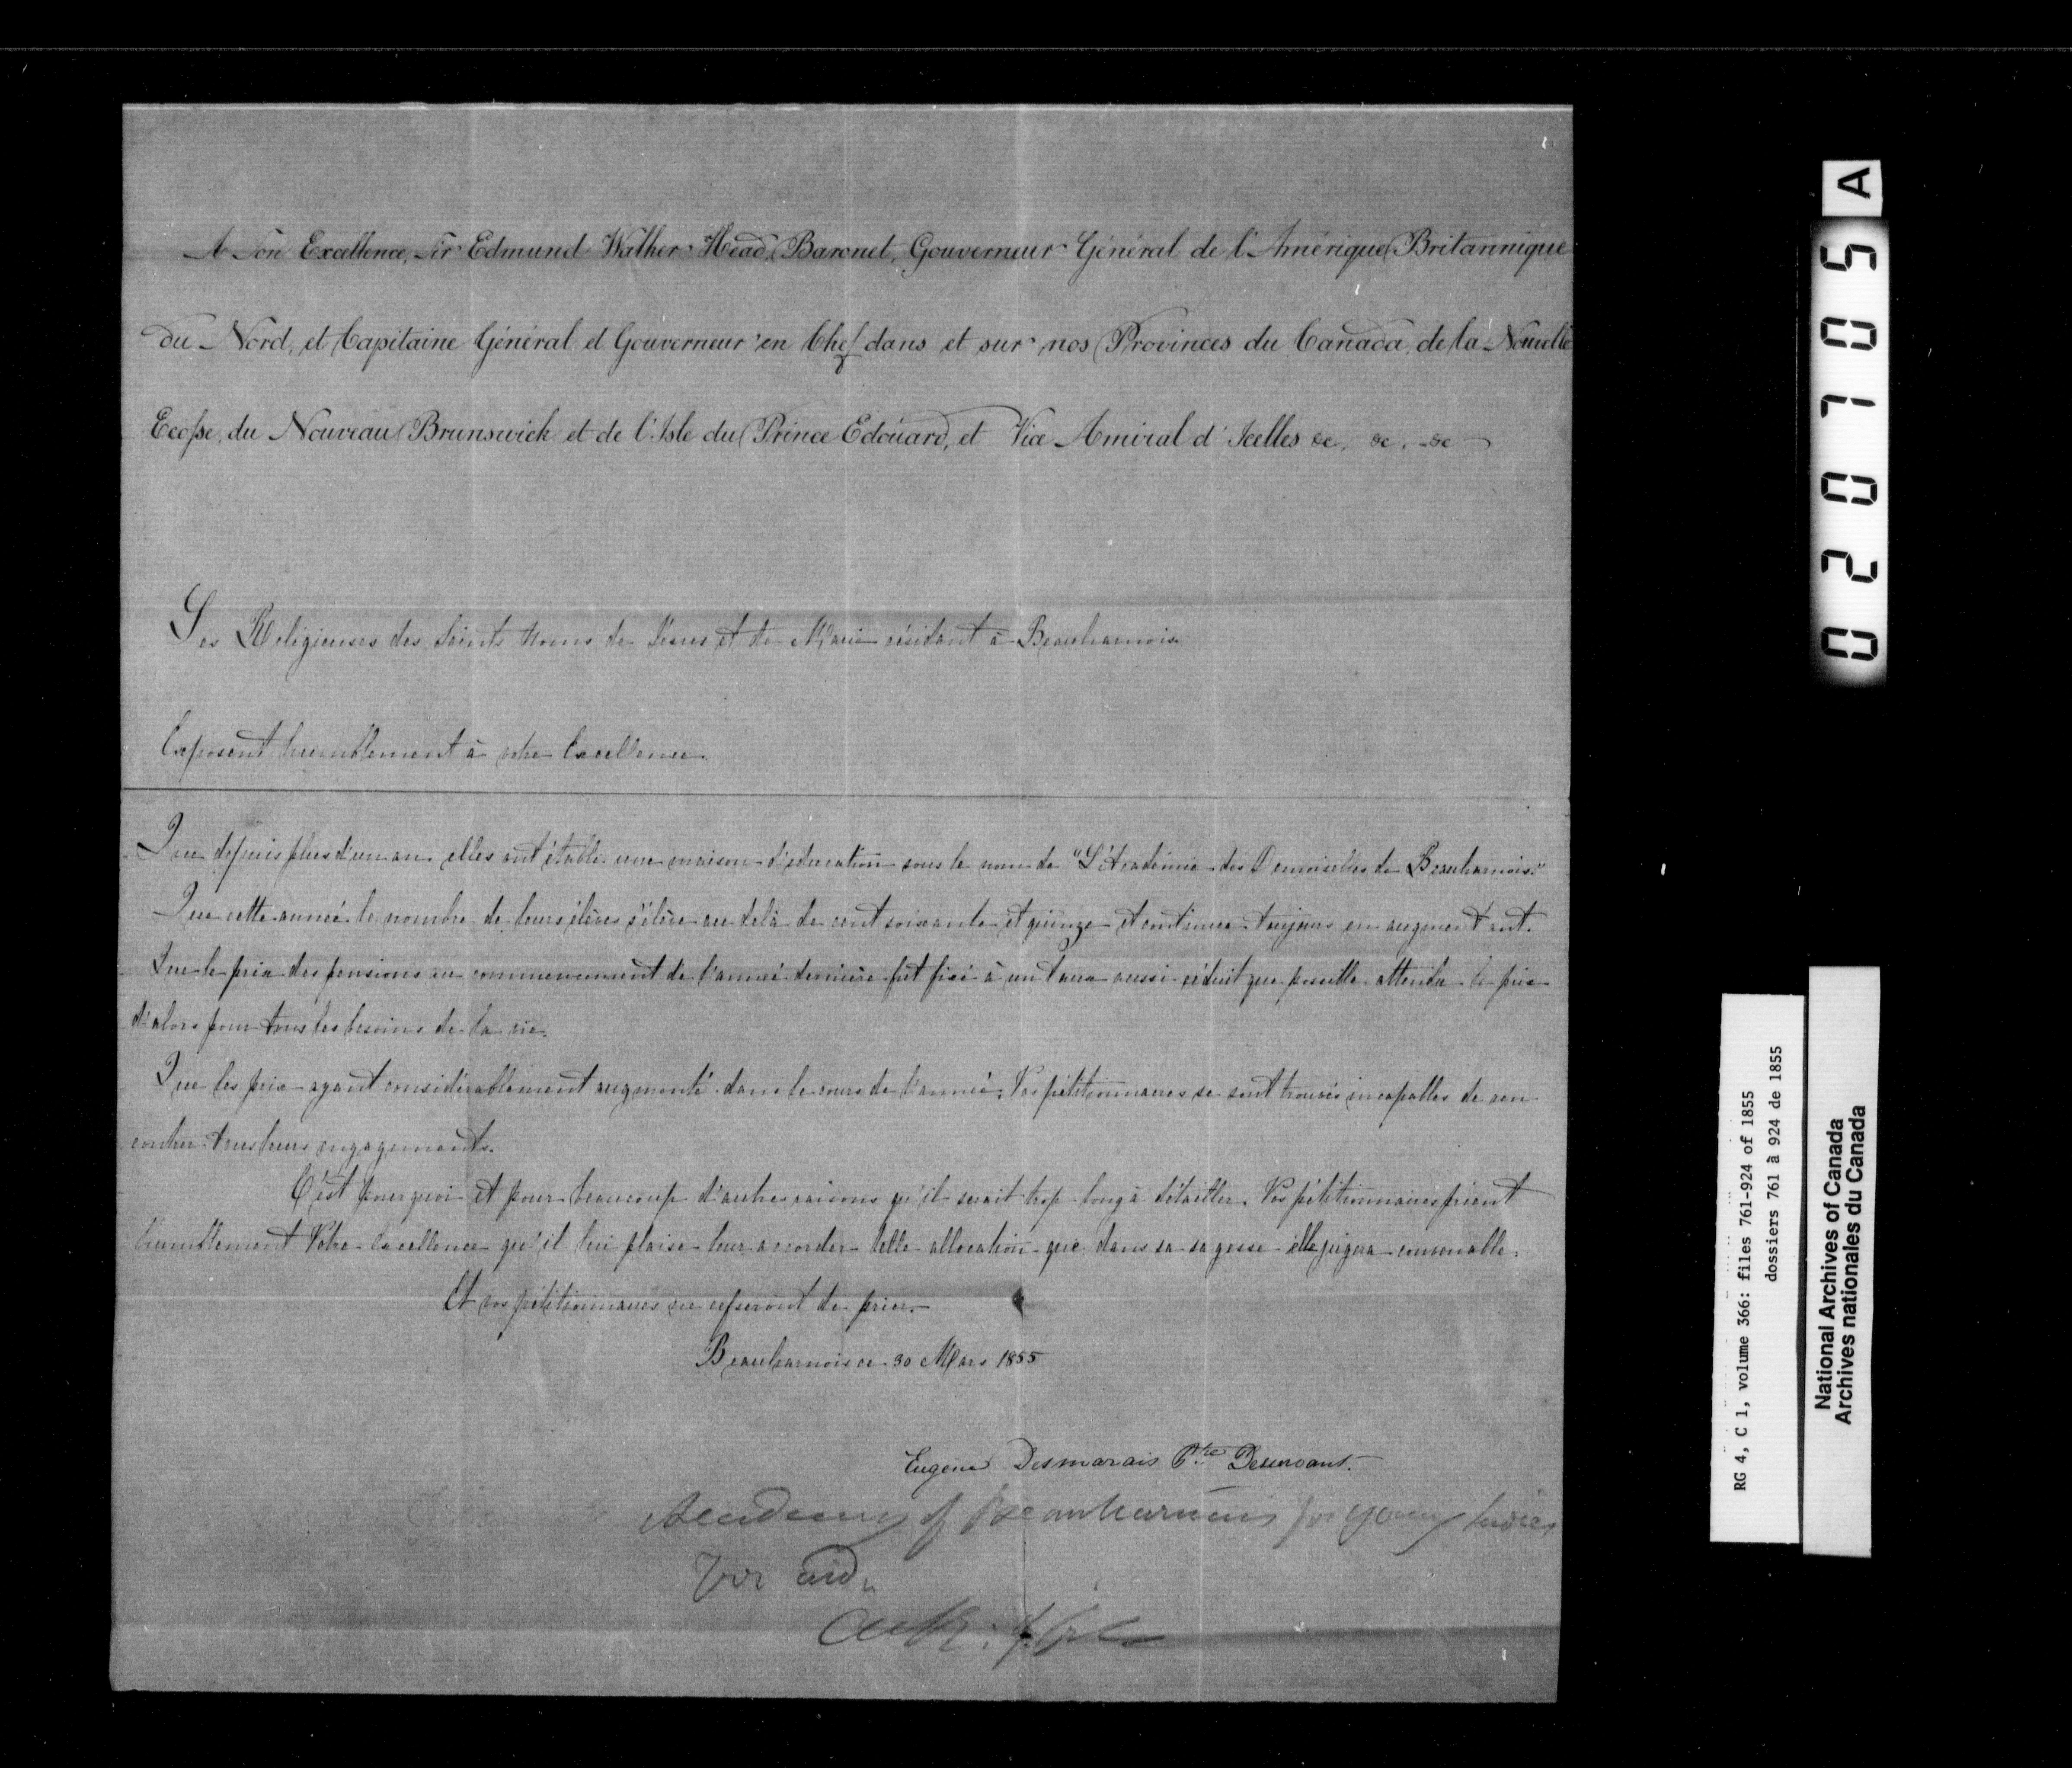 A Son Excellence, Sir Edmund Walker Head, Baronet, Gouverneur Général de l'Amérique Britannique
du Nord, et Capitaine Général et Gouverneur en Chef dans et sur nos Provinces du Canada, de la Nouvelle
Ecosse, du Nouveau Brunswick et de l'Isle du Prince Edouard, et Vice Amiral d'Icelles &c, &c, &c
Les Religieuses des Saints Noms de Jésus et de Marie résidant à Beauharnois
Exposent humblement à votre Excellence
Que depuis plus d'un an elles ont établi une maison d'éducation sous le nom de "L'Académie des Demoiselles de Beauharnois"
Que cette année le nombre de leurs élèves s'élève au delà de cent soixante et quinze et continue toujours en augmentant.
Que le prix des pensions au commencement de l'année dernière fut fixé à un taux aussi réduit que possible attendu le prix
d'alors pour tous les besoins de la vie.
Que les prix ayant considérablement augmenté dans le cours de l'année, Vos pétitionnaires se sont trouvés incapables de ren
contrer tous leurs engagements.
C'est pourquoi et pour beaucoup d'autres raisons qu'il serait trop long à détailler, Vos pétitionnaires prient
humblement Votre Excellence qu'il lui plaise leur accorder telle allocation que dans sa sagesse elle jugera convenable.
Et vos pétitionnaires ne cesseront de prier.
Beauharnois ce 30 Mars 1855
Eugène Desmarais Ptre Desservant.
Academy of Beauharnois for young ladies
for aid.
020705 A
RG 4, C 1, volume 366: files 761-924 of 1855
dossiers 761 à 924 de 1855
National Archives of Canada
Archives nationales du Canada